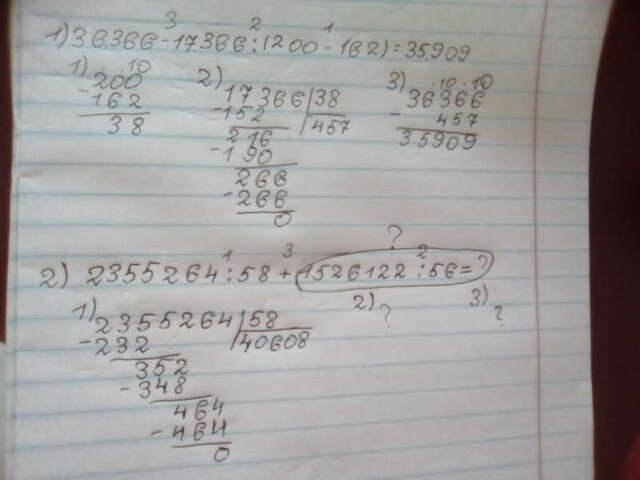 3 2 1
1) 36366-17366:(200-162)=35909
1) 10 2) 3) ·10·10
200 17366|38 36366
-162 -152 457 - 457
38 216 35909
-190
266
-266
0
?
1 3 2
2) 2355264:58+1526122:56=?
1) 2)? 3)?
2355264|58
-232 40608
352
-348
464
-464
0